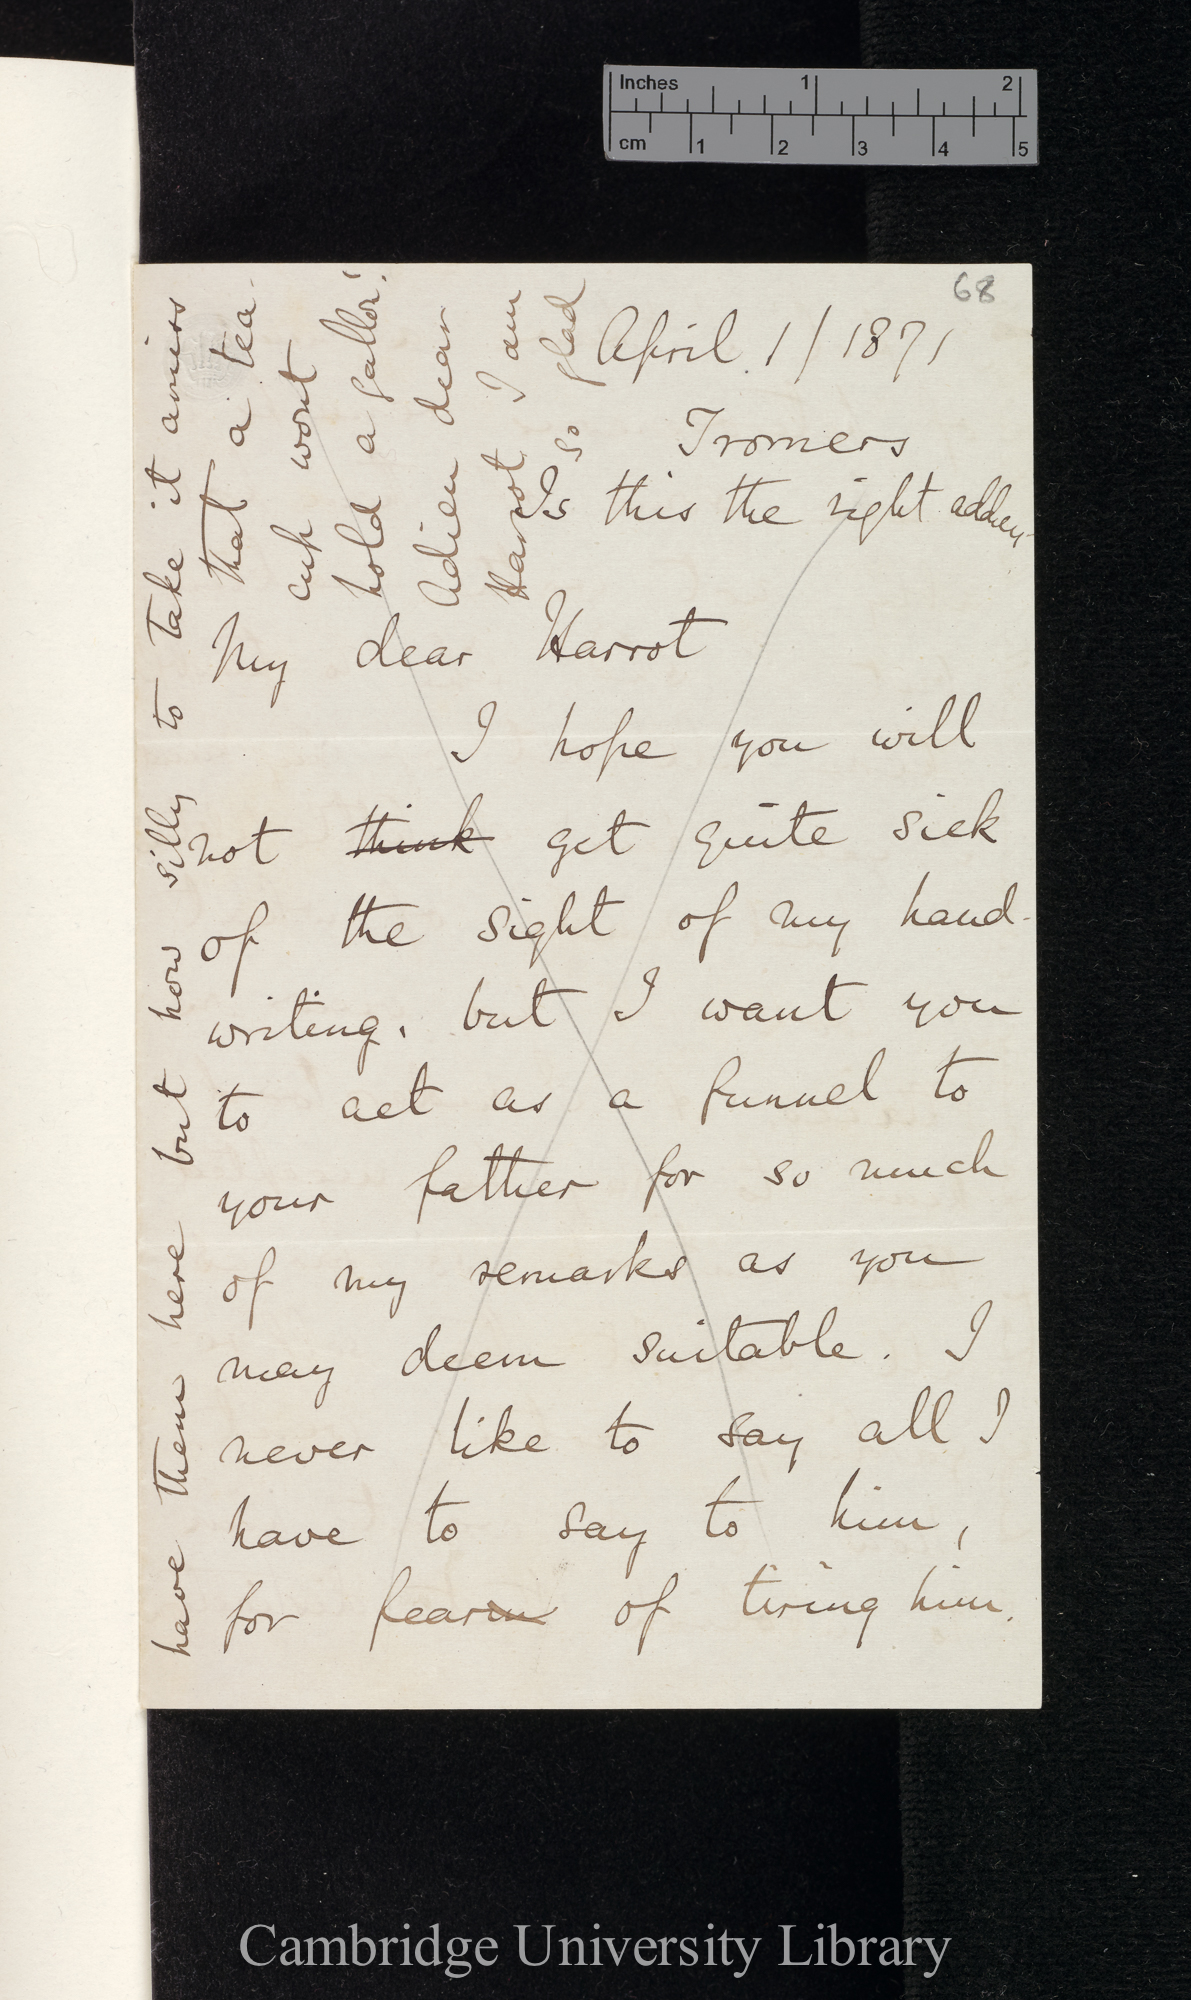 Inches 1 2
cm 1 2 3 4 5
68
April. 1/1871
Tromers
Is this the right
My dear Harrot
I hope you will
not think get quite sick
of the sight of my hand-
writing. but I want you
to act as a funnel to
your father for so much
of my remarks as you
may deem suitable. I
never like to say all I
have to say to him,
for fearin of tiring him.
have them here but how silly to take it amiss
that a tea-
cup wont
hold a gallon!
Adieu dear
Harrot I am
so glad
Cambridge University Library